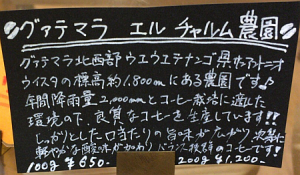 グァテマラ エル チャルム農園
グァテマラ北西部ウエウエテナンゴ県ホアントニオ
ウイスタの標高約1.800mにある農園です♪
年間降雨量2,000mmとコーヒー栽培に適した
環境の下、良質なコーヒーを生産しています!!
しっかりとした口当たりの旨味が広がり 次第に
軽やかな酸味が加わり バランス抜群のコーヒーです!
100g ¥650- 200g ¥1,200-